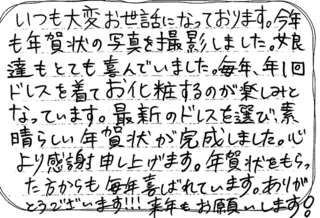 いつも大変お世話になっております。今年
も年賀状の写真を撮影しました。娘
達もとても喜んでいました。毎年、年1回
ドレスを着てお化粧するのが楽しみと
なっています。最新のドレスを選び、素
晴らしい年賀状が完成しました。心
より感謝申し上げます。年賀状をもらっ
た方からも毎年喜ばれています。ありが
とうございます!!!来年もお願いします!